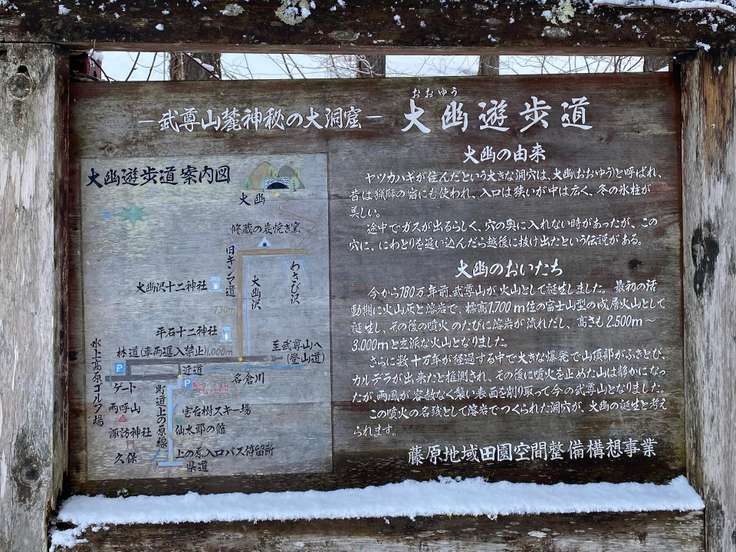 －武尊山麓神秘の大洞窟－
おおゆう
大幽遊歩道
大幽の由来
ヤツカハギが住んだという大きな洞穴は、大幽(おおゆう)と呼ばれ、
昔は猟師の宿にも使われ、入口は狭いが中は広く、冬の氷柱が
美しい。
途中でガスが出るらしく、穴の奥に入れない時があったが、この
穴に、にわとりを追い込んだら越後に抜け出たという伝説がある。
大幽のおいたち
今から180万年前、武尊山が火山として誕生しました。最初の活
動期に火山灰と溶岩で、標高1,700m位の富士山型の成層火山として
誕生し、その後の噴火のたびに溶岩が流れだし、高さも2,500m～
3,000mと立派な火山となりました。
さらに数十万年が経過する中で大きな爆発で山頂部がふきとび、
カルデラが出来たと推測され、その後に噴火を止めた山は静かになっ
たが、雨風が容赦なく襲い表面を削り取って今の武尊山となりました。
この噴火の名残として溶岩でつくられた洞穴が、大幽の誕生と考え
られます。
藤原地域田園空間整備構想事業
大幽遊歩道案内図
大幽
修蔵の炭焼き窯
旧キンマ道
大幽沢
わさび沢
大幽沢十二神社
730m
平石十二神社
至武尊山へ
(登山道)
林道(車両進入禁止)1,000m
P
近道
名倉川
P
ゲート
雨呼山
諏訪神社
久保
水上高原ゴルフ場
町道上の原線
宝台樹スキー場
仙太郎の館
上の原入口バス停留所
県道